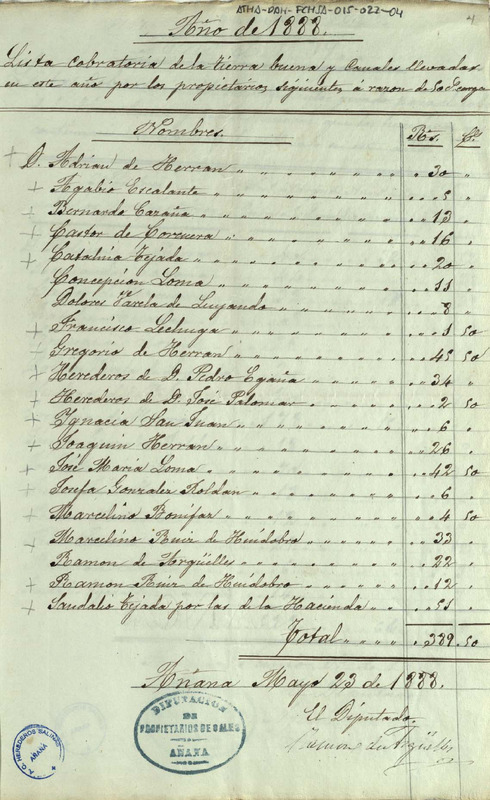 ATHA-DAH-FCHSA-015-022-04
Año de 1888.
Lista Cobratoria de la tierra buena y Canales llevadas
en este año por los propietarios siguientes á razon de 50 Cs carga
Nombres. Rs. Cs.
D. Adrian de Herran " 30 "
Agabio Escalante " 5 "
Bernardo " 13 "
Castor de Corcuera " 16 "
Catalina Tejada " 20 "
Concepción Loma " 11 "
Dolores Varela de Luyando " 8 "
Francisco Lechuga " 1 50
Gregorio de Herran " 45 50
Herederos de D. Pedro Egaña " 34 "
Herederos de D. José Palomar " 2 50
Ignacia San Juan " 6 "
Joaquin Herran " 26 "
José Maria Loma " 42 50
Josefa Gonzalez Roldan " 6 "
Marcelino Bonifaz " 4 50
Marcelino Ruiz de Huidobro " 33 "
Ramon de Argüelles " 22 "
Ramon Ruiz de Huidobro " 12 "
Sandalio Tejada por las de la Hacienda " 51 "
Total " 389.50
Añana Mayo 23 de 1888.
El Diputado
Ramon de Argüelles
DIPUTACION
DE
PROPIETARIOS DE SALES
AÑANA
AÑANA